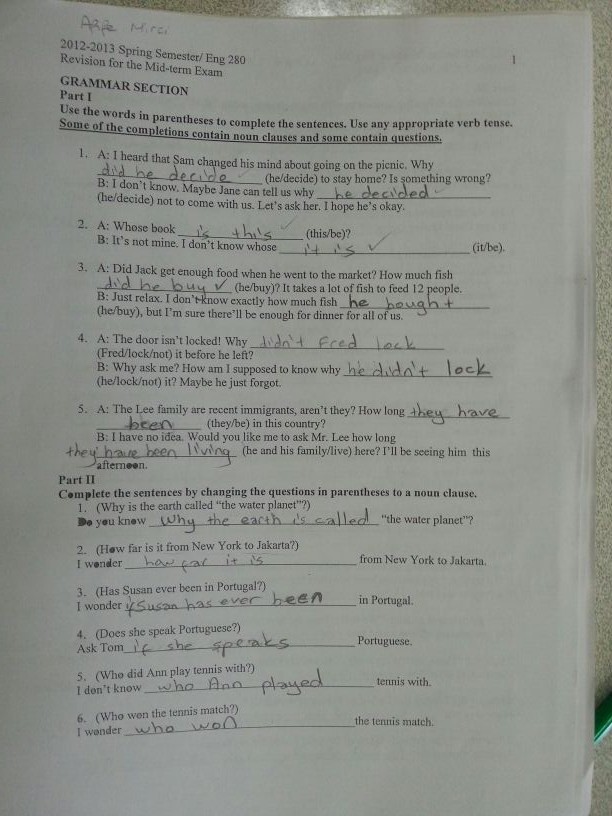 2012-2013 Spring Semester/ Eng 280
1
Revision for the Mid-term Exam
GRAMMAR SECTION
Part I
Use the words in parentheses to complete the sentences. Use any appropriate verb tense.
Some of the completions contain noun clauses and some contain questions.
1. A: I heard that Sam changed his mind about going on the picnic. Why
did he decide (he/decide) to stay home? Is something wrong?
B: I don't know. Maybe Jane can tell us why he decided
(he/decide) not to come with us. Let's ask her. I hope he's okay.
2. A: Whose book is this (this/be)?
B: It's not mine. I don't know whose it is (it/be).
3. A: Did Jack get enough food when he went to the market? How much fish
did he buy (he/buy)? It takes a lot of fish to feed 12 people.
B: Just relax. I don't know exactly how much fish he bought
(he/buy), but I'm sure there'll be enough for dinner for all of us.
4. A: The door isn't locked! Why didn't Fred lock
(Fred/lock/not) it before he left?
B: Why ask me? How am I supposed to know why he didn't lock
(he/lock/not) it? Maybe he just forgot.
5. A: The Lee family are recent immigrants, aren't they? How long they have
been (they/be) in this country?
B: I have no idea. Would you like me to ask Mr. Lee how long
they have been living (he and his family/live) here? I'll be seeing him this
afternoon.
Part II
Complete the sentences by changing the questions in parentheses to a noun clause.
1. (Why is the earth called "the water planet"?)
Do you know why the earth is called "the water planet"?
2. (How far is it from New York to Jakarta?)
I wonder how far it is from New York to Jakarta.
3. (Has Susan ever been in Portugal?)
I wonder if Susan has ever been in Portugal.
4. (Does she speak Portuguese?)
Ask Tom if she speaks Portuguese.
5. (Who did Ann play tennis with?)
I don't know who Ann played tennis with.
6. (Who won the tennis match?)
I wonder who won the tennis match.